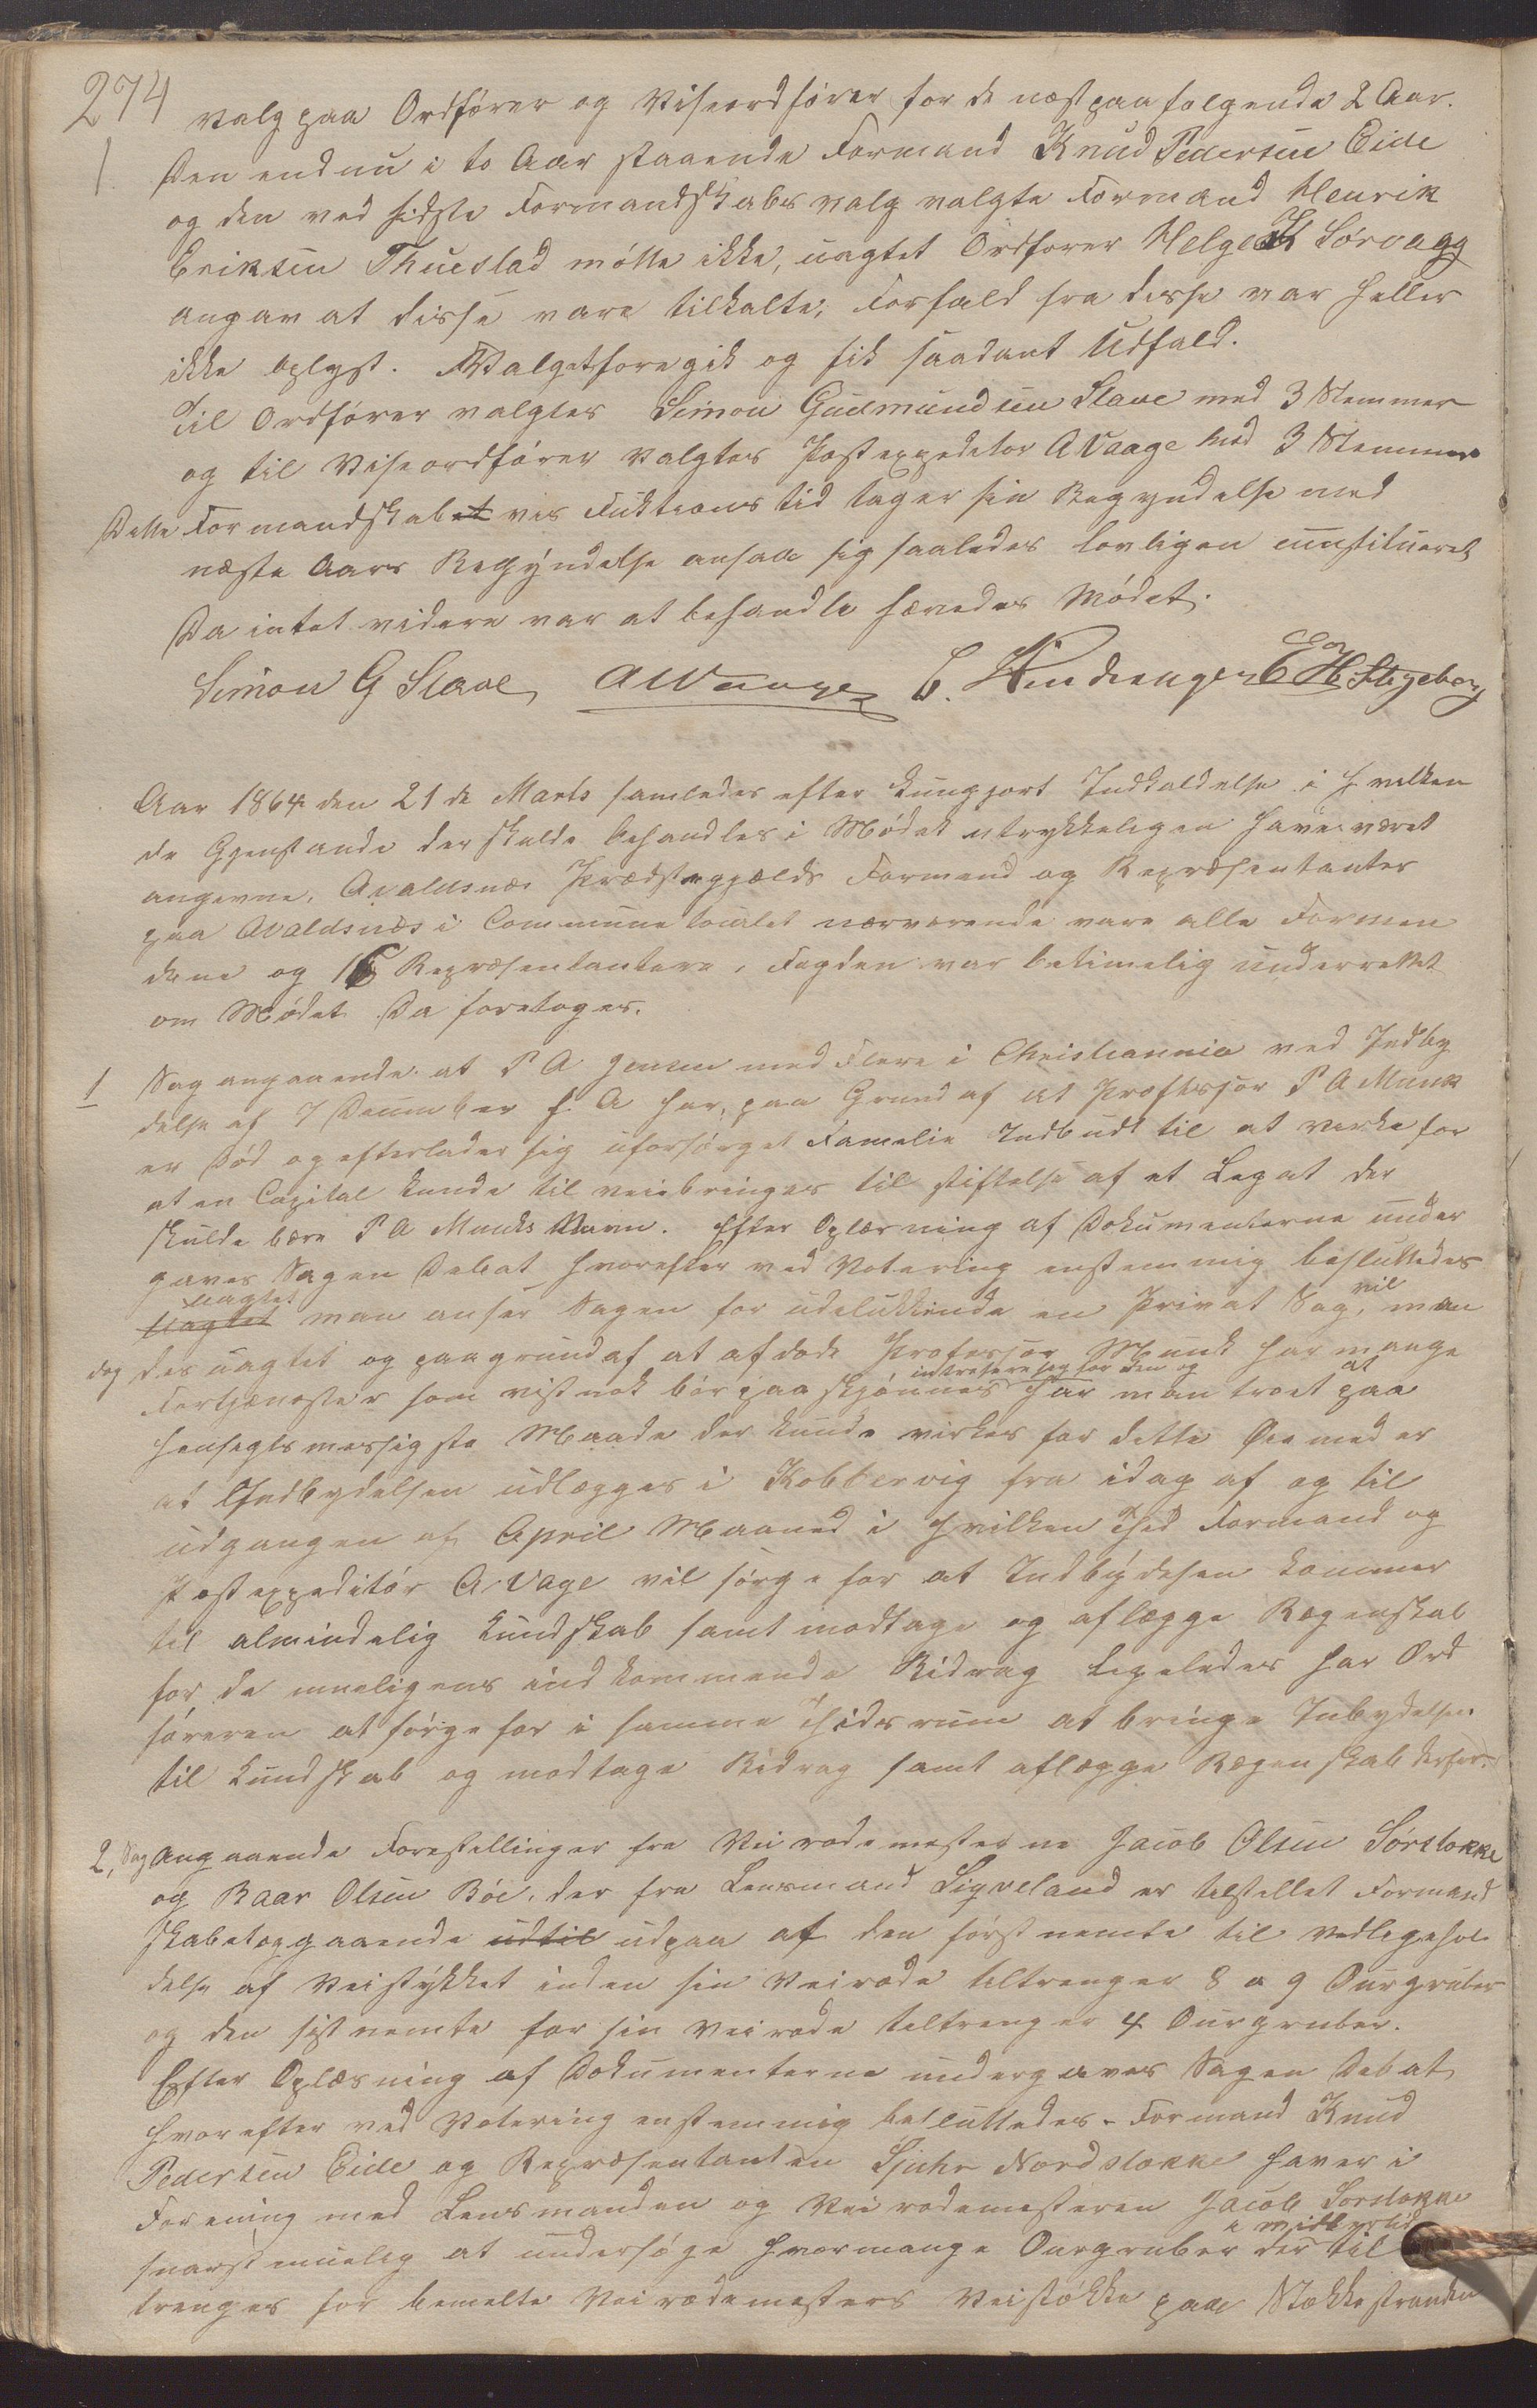 274
valg paa Ordfører og Viseordfører for de næstpaafølgende 2 Aar.
1. Den endnu i to Aar staaende Formand Knud Pedersen Eide
og den ved sidste Formandskabsvalg valgte Formand Henrik
Eriksen Thueslad mötte ikke, uagtet Ordfører Helge K Sørvagg
angav at disse vare tilkalte; Forfald fra disse var heller
ikke oplyst. Valget foregik og fik saadant Udfald.
Til Ordfører valgtes Simon Gudmundsen Stave med 3 Stemmer
og til Viseordfører valgtes Postexpeditor A Vaage med 3 Stemmer
Dette Formandskabet vis Funktions tid tager sin Begyndelse med
næste Aars Begyndelse ansaa sig saaledes lovligen constitueret
Da intet videre var at behandle hævedes Mødet.
Simon G Stave A Waage C. Kindinger E H Stegeberg
Aar 1864 den 21 de Marts samledes efter kungjort Indkaldelse i hvilken
de Gjenstande der skulde behandles i Mødet utrykkeligen have været
angivne, Avaldsnæs Prædstegjælds Formænd og Repræsentanter
paa Avaldsnæs i Communelocalet nærværende vare alle Formæn
dene og 16 Repræsentantere, Fogden var betimelig underrettet
om Mødet. Da foretoges.
1 Sag angaaende at P A Jensen med Flere i Christiannia ved Indby
delse af 7 December f. A har, paa Grund af at Proffessor P A Munk
er Død og efterlader sig uforsørget Familie Indbudt til at virke for
at en Capital kunde tilveiebringes til stiftelse af et Legat der
skulde bære P A Munks Navn. Efter Oplæsning af Dokumenterne under
gaves Sagen Debat hvorefter ved Votering enstemmig besluttedes
uagtet
uagtet man anser Sagen for udelukkende en Privat Sag, vil man
dog desuagtet og paagrundaf at afdøde Professor Munk har mange
intresere sig for den og at
Fortjenester som vistnok bør paaskjønnes har man troet paa
hensigtsmessigste Maade der kunde virkes for dette Øiemed er
at Indbydelsen udlægges i Kobbervig fra idag af og til
udgangen af April Maaned i hvilken Thid Formand og
Postexpeditör A. Vage vil sørge for at Indbydesen kommer
til almindelig Kundskab samt modtage og aflægge Regenskab
for de mueligens indkommende Bidrag ligeledes har Ord
føreren at sørge for i samme Thidsrum at bringe Inbydelsen
til Kundskab og modtage Bidrag samt aflægge Regenskab derfor.
2, Sag angaaende Forestillinger fra Veirodemesterne Jacob Olsen Sørstokke
og Baar Olsen Böe, der fra Lensmand Sigveland er tilstillet Formand
skabet oggaaende udtil udpaa af den først nemte til Vedligehol
delse af Veistykket inden sin Veirode tiltrenger 8 a 9 Ourgruber
og den sistnemte for sin Veirode tiltrenger 4 Ourgruber.
Efter Oplæsning af Dokumenterne undergaves Sagen Debat
hvorefter ved Votering enstemmig besluttedes - Formand Knud
Pedersen Eide og Repræsentanten Sjuhr Nordstokke haver i
Forening med Lensmanden og Veirodemesteren Jacob Sørstokke
snarst muelig at undersøge hvormange Ourgruber der til
trenges for bemelte Veirodemesters Veistøkke paa Stokkestranden